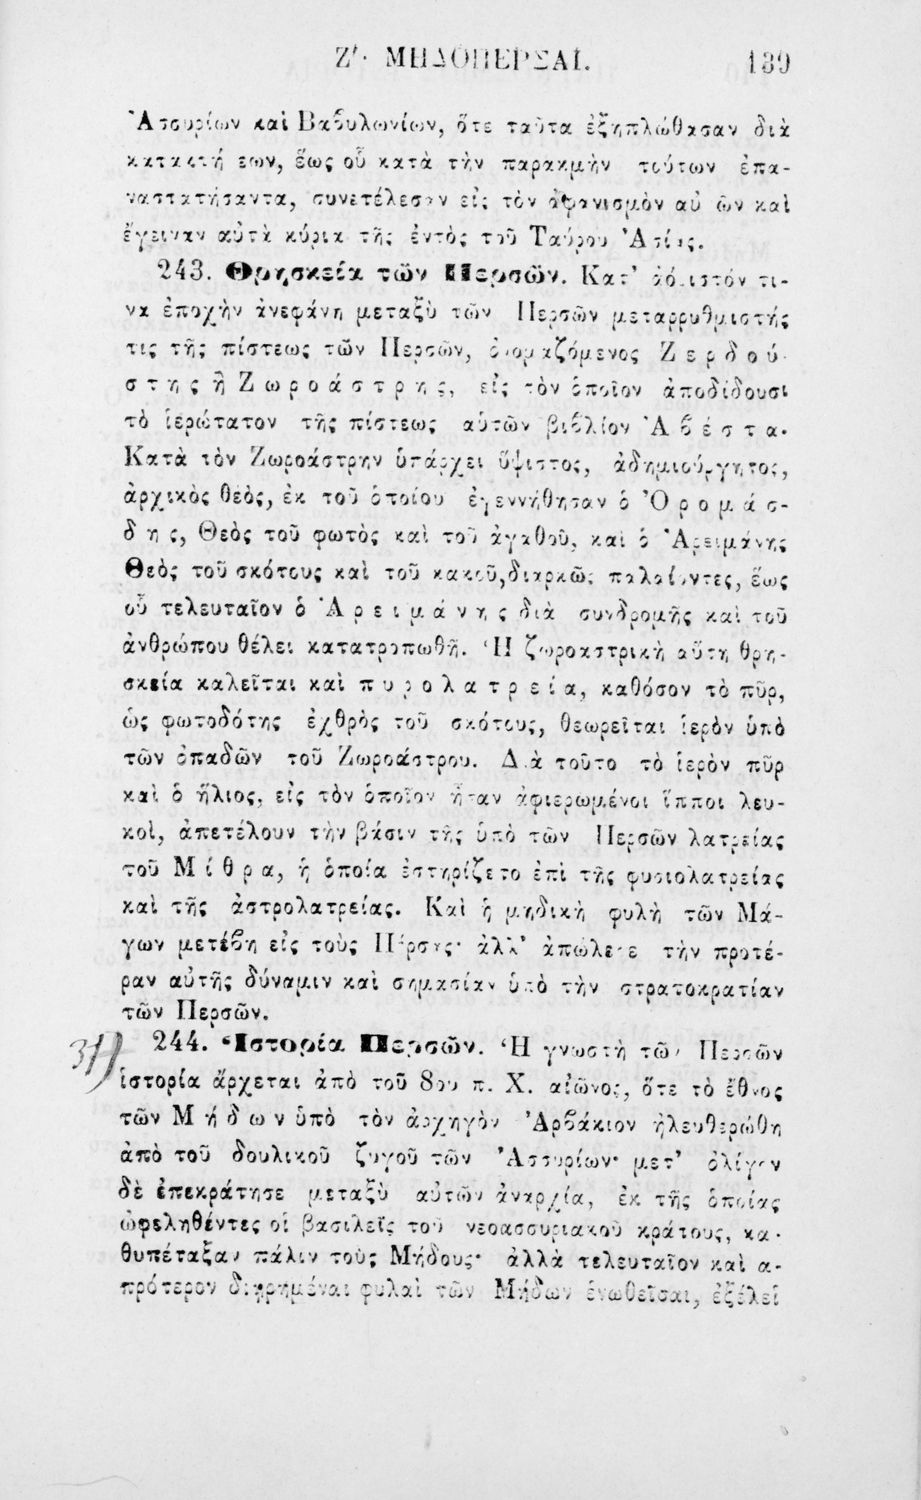 Ζ′· ΜΗΔΟΠΕΡΣΑΙ. 139
Ἀσσυρίων καὶ Βαβυλωνίων, ὅτε ταῦτα ἐξηπλώθασαν διὰ
κατακτήσεων, ἕως οὗ κατὰ τὴν παρακμὴν τούτων ἐπα-
ναστατήσαντα, συνετέλεσαν εἰς τὸν ἀφανισμὸν αὐτῶν καὶ
ἔγειναν αὐτὰ κύρια τῆς ἐντὸς τοῦ Ταύρου Ἀσίας.
243. Θρησκεία τῶν Περσῶν. Κατ' ἀόριστόν τι-
να ἐποχὴν ἀνεφάνη μεταξὺ τῶν Περσῶν μεταρρυθμιστής
τις τῆς πίστεως τῶν Περσῶν, ὀνομαζόμενος Ζερδού-
στης ἢ Ζωροάστρης, εἰς τὸν ὁποῖον ἀποδίδουσι
τὸ ἱερώτατον τῆς πίστεως αὑτῶν βιβλίον Ἀβέστα.
Κατὰ τὸν Ζωροάστρην ὑπάρχει ὕψιστος, ἀδημιούργητος,
ἀρχικὸς θεὸς, ἐκ τοῦ ὁποίου ἐγεννήθησαν ὁ Ὀρομάσ-
δης, Θεὸς τοῦ φωτὸς καὶ τοῦ ἀγαθοῦ, καὶ ὁ Ἀρειμάνης
Θεὸς τοῦ σκότους καὶ τοῦ κακοῦ, διαρκῶς παλαίοντες, ἕως
οὗ τελευταῖον ὁ Ἀρειμάνης διὰ συνδρομῆς καὶ τοῦ
ἀνθρώπου θέλει κατατροπωθῆ. Ἡ ζωροαστρικὴ αὕτη θρη-
σκεία καλεῖται καὶ πυρολατρεία, καθόσον τὸ πῦρ,
ὡς φωτοδότης ἐχθρὸς τοῦ σκότους, θεωρεῖται ἱερὸν ὑπὸ
τῶν ὀπαδῶν τοῦ Ζωροάστρου. Διὰ τοῦτο τὸ ἱερὸν πῦρ
καὶ ὁ ἥλιος, εἰς τὸν ὁποῖον ἦσαν ἀφιερωμένοι ἵπποι λευ-
κοὶ, ἀπετέλουν τὴν βάσιν τῆς ὑπὸ τῶν Περσῶν λατρείας
τοῦ Μίθρα, ἡ ὁποία ἐστηρίζετο ἐπὶ τῆς φυσιολατρείας
καὶ τῆς ἀστρολατρείας. Καὶ ἡ μηδικὴ φυλὴ τῶν Μά-
γων μετέβη εἰς τοὺς Πέρσας· ἀλλ' ἀπώλεσε τὴν προτέ-
ραν αὑτῆς δύναμιν καὶ σημασίαν ὑπὸ τὴν στρατοκρατίαν
τῶν Περσῶν.
244. Ἱστορία Περσῶν. Ἡ γνωστὴ τῶν Περσῶν
ἱστορία ἄρχεται ἀπὸ τοῦ 8ου π. Χ. αἰῶνος, ὅτε τὸ ἔθνος
τῶν Μήδων ὑπὸ τὸν ἀρχηγὸν Ἀρβάκιον ἠλευθερώθη
ἀπὸ τοῦ δουλικοῦ ζυγοῦ τῶν Ἀσσυρίων· μετ' ὀλίγον
δὲ ἐπεκράτησε μεταξὺ αὐτῶν ἀναρχία, ἐκ τῆς ὁποίας
ὠφεληθέντες οἱ βασιλεῖς τοῦ νεοασσυριακοῦ κράτους, κα-
θυπέταξαν πάλιν τοὺς Μήδους· ἀλλὰ τελευταῖον καὶ α-
πρότερον διῃρημέναι φυλαὶ τῶν Μήδων ἑνωθεῖσαι, ἐξέλεξ